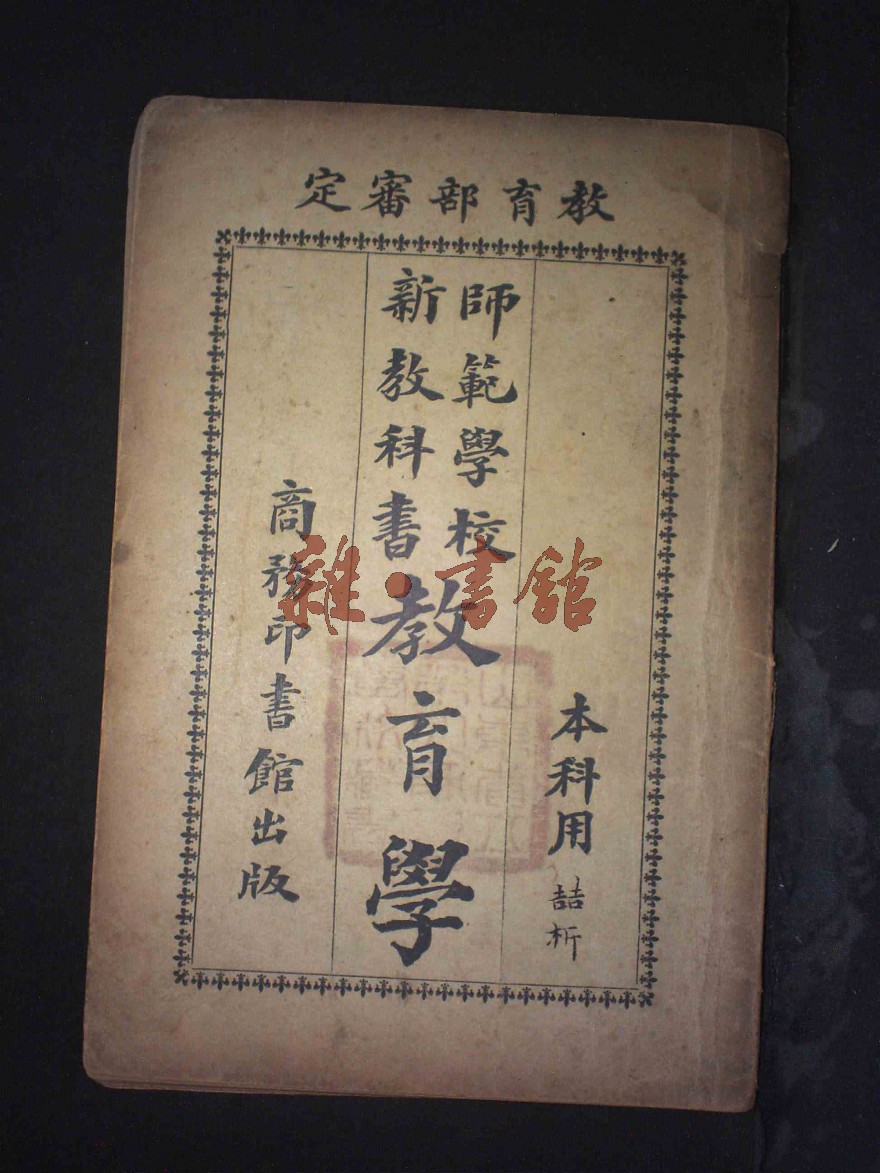 教育部審定
本科用
喆析
師範學校
新教科書
教育學
商務印書館出版
雜·書館